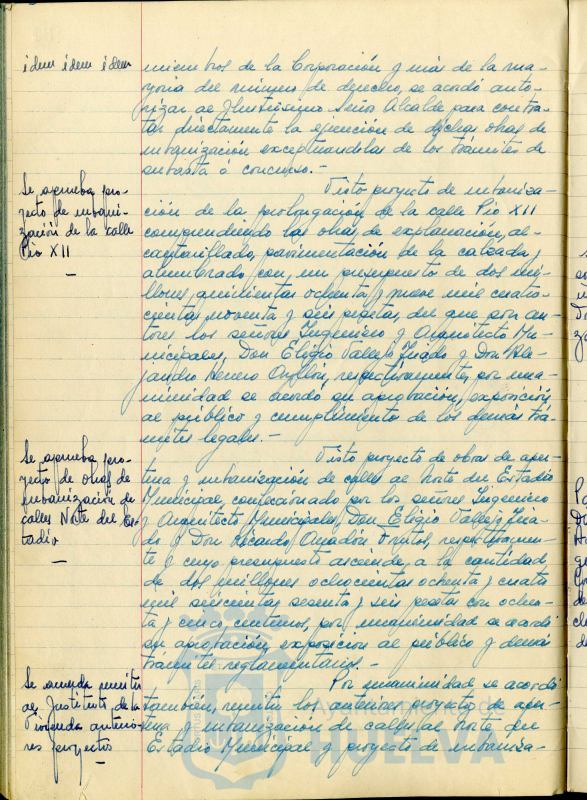 idem idem idem
miembros de la Corporación y más de la ma-
yoria del número de derecho, se acordó auto-
rizar al Ilustrísimo Señor Alcalde para contra-
tar directamente la ejecución de dichas obras de
urbanización exceptuandolas de los trámites de
subasta ó concurso.-
Se aprueba pro-
yecto de urbani-
zación de la calle
Pio XII
Visto proyecto de urbaniza-
ción de la prolongación de la calle Pio XII
comprendiendo las obras de explanación, al-
cantarillado, pavimentación de la calzada y
alumbrado con un presupuesto de dos mi-
llones, quinientas ochenta y nueve mil cuatro-
cientas noventa y seis pesetas, del que son au-
tores los señores Ingeniero y Arquitecto Mu-
nicipales, Don Eligio Vallejo y Don Ale-
jandro Herrero Ayllón, respectivamente, por una-
nimidad se acordó su aprobación, exposición
al público y cumplimiento de los demás trá-
mites legales.-
Se aprueba pro-
yecto de obras de
urbanización de
calles Norte del Es-
tadio
Visto proyecto de obras de aper-
tura y urbanización de calles al Norte del Estadio
Municipal, confeccionado por los señores Ingeniero
y Arquitecto Municipales, Don Eligio Vallejo
y Don Ricardo respectivamen-
te y cuyo presupuesto asciende a la cantidad
de dos millones ochocientas ochenta y cuatro
mil seiscientas sesenta y seis pesetas con ochen-
ta y cinco centimos, por unanimidad se acordó
su aprobación, exposicion al público y demás
tramites reglamentarios.-
Se acuerda remitir
al Instituto de la
Vivienda anterio-
res proyectos
Por unanimidad se acordó
tambien, remitir los anteriores proyectos de aper-
tura y urbanización de calles al Norte del
Estadio Municipal y proyecto de urbaniza-
HUELVA